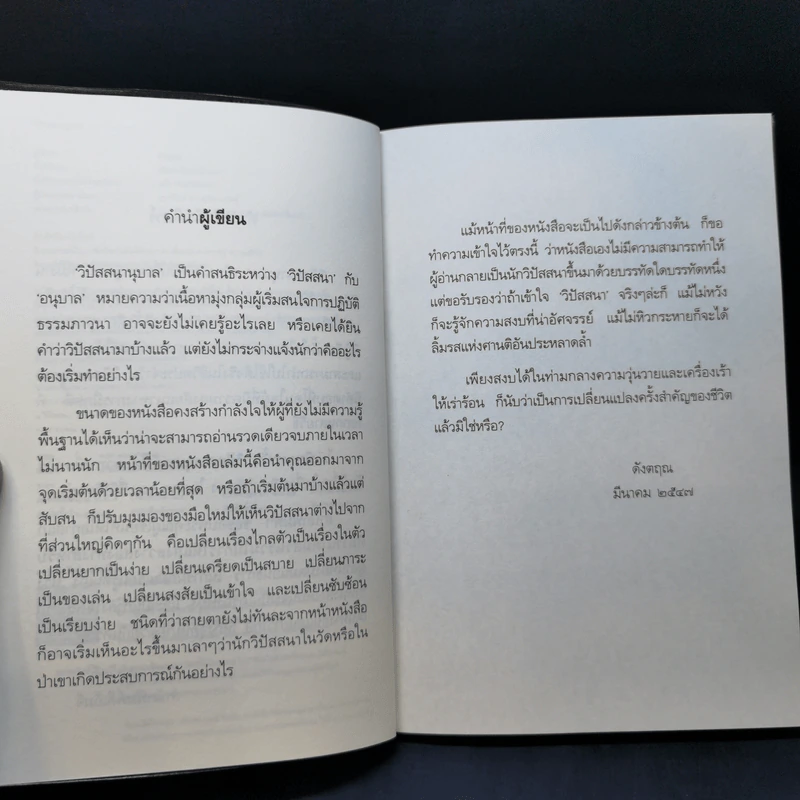 คำนำผู้เขียน
'วิปัสสนานุบาล' เป็นคำสนธิระหว่าง 'วิปัสสนา' กับ
'อนุบาล' หมายความว่าเนื้อหามุ่งกลุ่มผู้เริ่มสนใจการปฏิบัติ
ธรรมภาวนา อาจจะยังไม่เคยรู้อะไรเลย หรือเคยได้ยิน
คำว่าวิปัสสนามาบ้างแล้ว แต่ยังไม่กระจ่างแจ้งนักว่าคืออะไร
ต้องเริ่มทำอย่างไร
ขนาดของหนังสือคงสร้างกำลังใจให้ผู้ที่ยังไม่มีความรู้
พื้นฐานได้เห็นว่าน่าจะสามารถอ่านรวดเดียวจบภายในเวลา
ไม่นานนัก หน้าที่ของหนังสือเล่มนี้คือนำคุณออกมาจาก
จุดเริ่มต้นด้วยเวลาน้อยที่สุด หรือถ้าเริ่มต้นมาบ้างแล้วแต่
สับสน ก็ปรับมุมมองของมือใหม่ให้เห็นวิปัสสนาต่างไปจาก
ที่ส่วนใหญ่คิดๆกัน คือเปลี่ยนเรื่องไกลตัวเป็นเรื่องในตัว
เปลี่ยนยากเป็นง่าย เปลี่ยนเครียดเป็นสบาย เปลี่ยนภาระ
เป็นของเล่น เปลี่ยนสงสัยเป็นเข้าใจ และเปลี่ยนซับซ้อน
เป็นเรียบง่าย ชนิดที่ว่าสายตายังไม่ทันละจากหน้าหนังสือ
ก็อาจเริ่มเห็นอะไรขึ้นมาเลาๆว่านักวิปัสสนาในวัดหรือใน
ป่าเขาเกิดประสบการณ์กันอย่างไร
แม้หน้าที่ของหนังสือจะเป็นไปดังกล่าวข้างต้น ก็ขอ
ทำความเข้าใจไว้ตรงนี้ ว่าหนังสือเองไม่มีความสามารถทำให้
ผู้อ่านกลายเป็นนักวิปัสสนาขึ้นมาด้วยบรรทัดใดบรรทัดหนึ่ง
แต่ขอรับรองว่าถ้าเข้าใจ 'วิปัสสนา' จริงๆล่ะก็ แม้ไม่หวัง
ก็จะรู้จักความสงบที่น่าอัศจรรย์ แม้ไม่หิวกระหายก็จะได้
ลิ้มรสแห่งศานติอันประหลาดล้ำ
เพียงสงบได้ในท่ามกลางความวุ่นวายและเครื่องเร้า
ให้เร่าร้อน ก็นับว่าเป็นการเปลี่ยนแปลงครั้งสำคัญของชีวิต
แล้วมิใช่หรือ?
ดังตฤณ
มีนาคม ๒๕๔๗